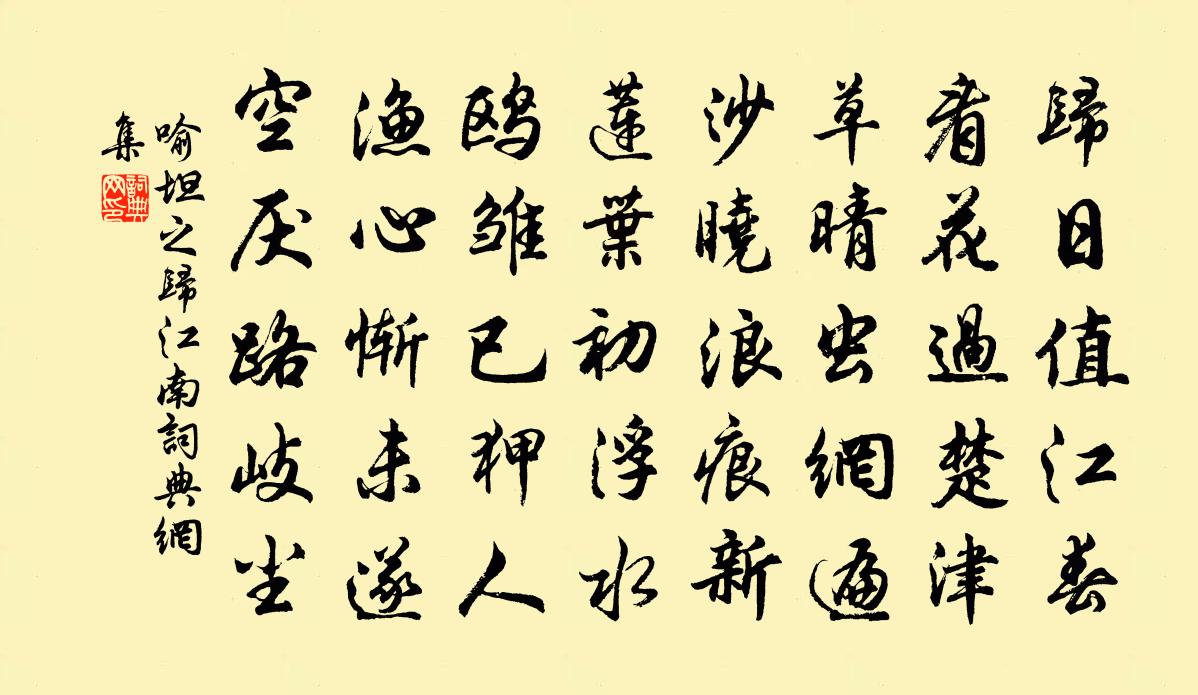 歸日值江春
看花過楚津
草晴虫網遍
沙曉浪痕新
蓮葉初浮水
鸥雏已狎人
漁心慚未遂
空厌路岐尘
喻坦之歸江南詞典網
集
詞典网印